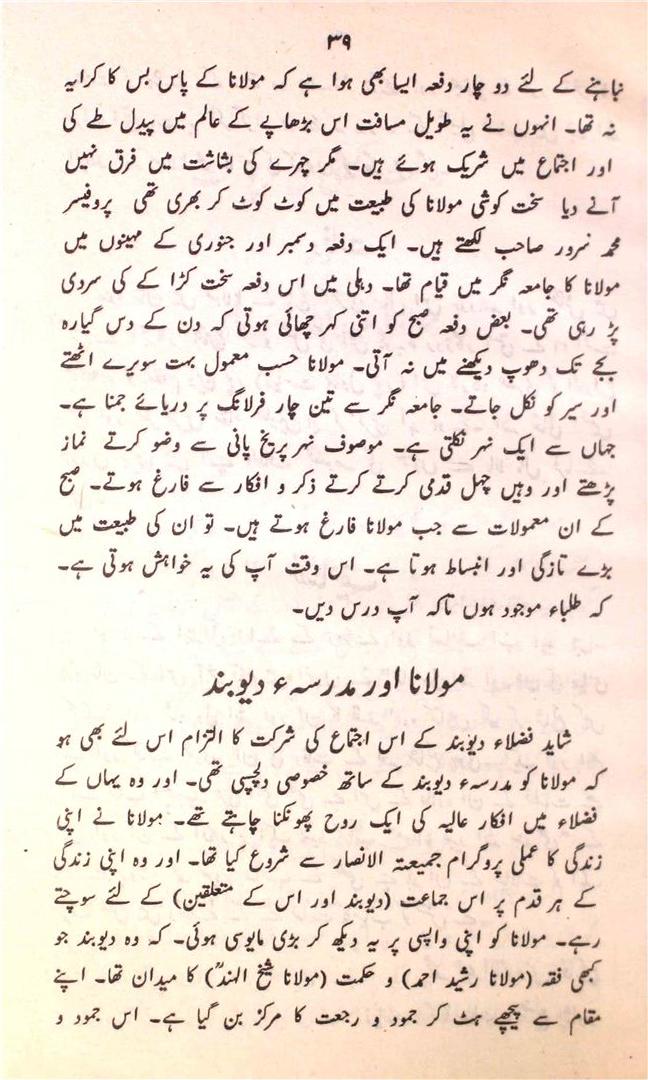 ۳۹
نباہنے کے لئے دو چار دفعہ ایسا بھی ہوا ہے کہ مولانا کے پاس بس کا کرایہ
نہ تھا۔ انہوں نے یہ طویل مسافت اس بڑھاپے کے عالم میں پیدل طے کی
اور اجتماع میں شریک ہوئے ہیں۔ مگر چہرے کی بشاشت میں فرق نہیں
آنے دیا سخت کوشی مولانا کی طبیعت میں کوٹ کوٹ کر بھری تھی پروفیسر
محمد سرور صاحب لکھتے ہیں۔ ایک دفعہ دسمبر اور جنوری کے مہینوں میں
مولانا کا جامعہ نگر میں قیام تھا۔ دہلی میں اس دفعہ سخت کڑا کے کی سردی
پڑ رہی تھی۔ بعض دفعہ صبح کو اتنی کہر چھائی ہوتی کہ دن کے دس گیارہ
بجے تک دھوپ دیکھنے میں نہ آتی۔ مولانا حسب معمول بہت سویرے اٹھتے
اور سیر کو نکل جاتے۔ جامعہ نگر سے تین چار فرلانگ پر دریائے جمنا ہے۔
جہاں سے ایک نہر نکلتی ہے۔ موصوف نہر پریخ پانی سے وضو کرتے نماز
پڑھتے اور وہیں چہل قدمی کرتے کرتے ذکر و افکار سے فارغ ہوتے۔ صبح
کے ان معمولات سے جب مولانا فارغ ہوتے ہیں۔ تو ان کی طبیعت میں
بڑے تازگی اور انبساط ہوتا ہے۔ اس وقت آپ کی یہ خواہش ہوتی ہے۔
کہ طلباء موجود ہوں تاکہ آپ درس دیں۔
مولانا اور مدرسہء دیوبند
شاید فضلاء دیوبند کے اس اجتماع کی شرکت کا التزام اس لئے بھی ہو
کہ مولانا کو مدرسہء دیوبند کے ساتھ خصوصی دلچسپی تھی۔ اور وہ یہاں کے
فضلاء میں افکار عالیہ کی ایک روح پھونکنا چاہتے تھے۔ مولانا نے اپنی
زندگی کا عملی پروگرام جمیعتہ الانصار سے شروع کیا تھا۔ اور وہ اپنی زندگی
کے ہر قدم پر اس جماعت (دیوبند اور اس کے متعلقین) کے لئے سوچتے
رہے۔ مولانا کو اپنی واپسی پر یہ دیکھ کر بڑی مایوسی ہوئی۔ کہ وہ دیوبند جو
کبھی فقہ (مولانا رشید احمد) و حکمت (مولانا شیخ الہندؒ) کا میدان تھا۔ اپنے
مقام سے پیچھے ہٹ کر جمود و رجعت کا مرکز بن گیا ہے۔ اس جمود و